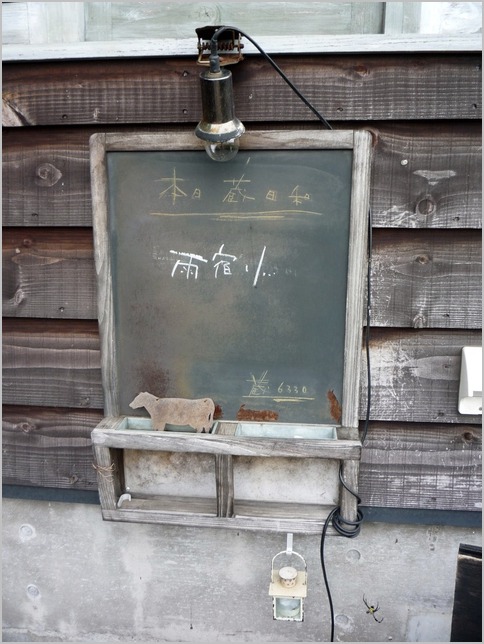 本日 蔵日和
雨宿り...
蔵 6330